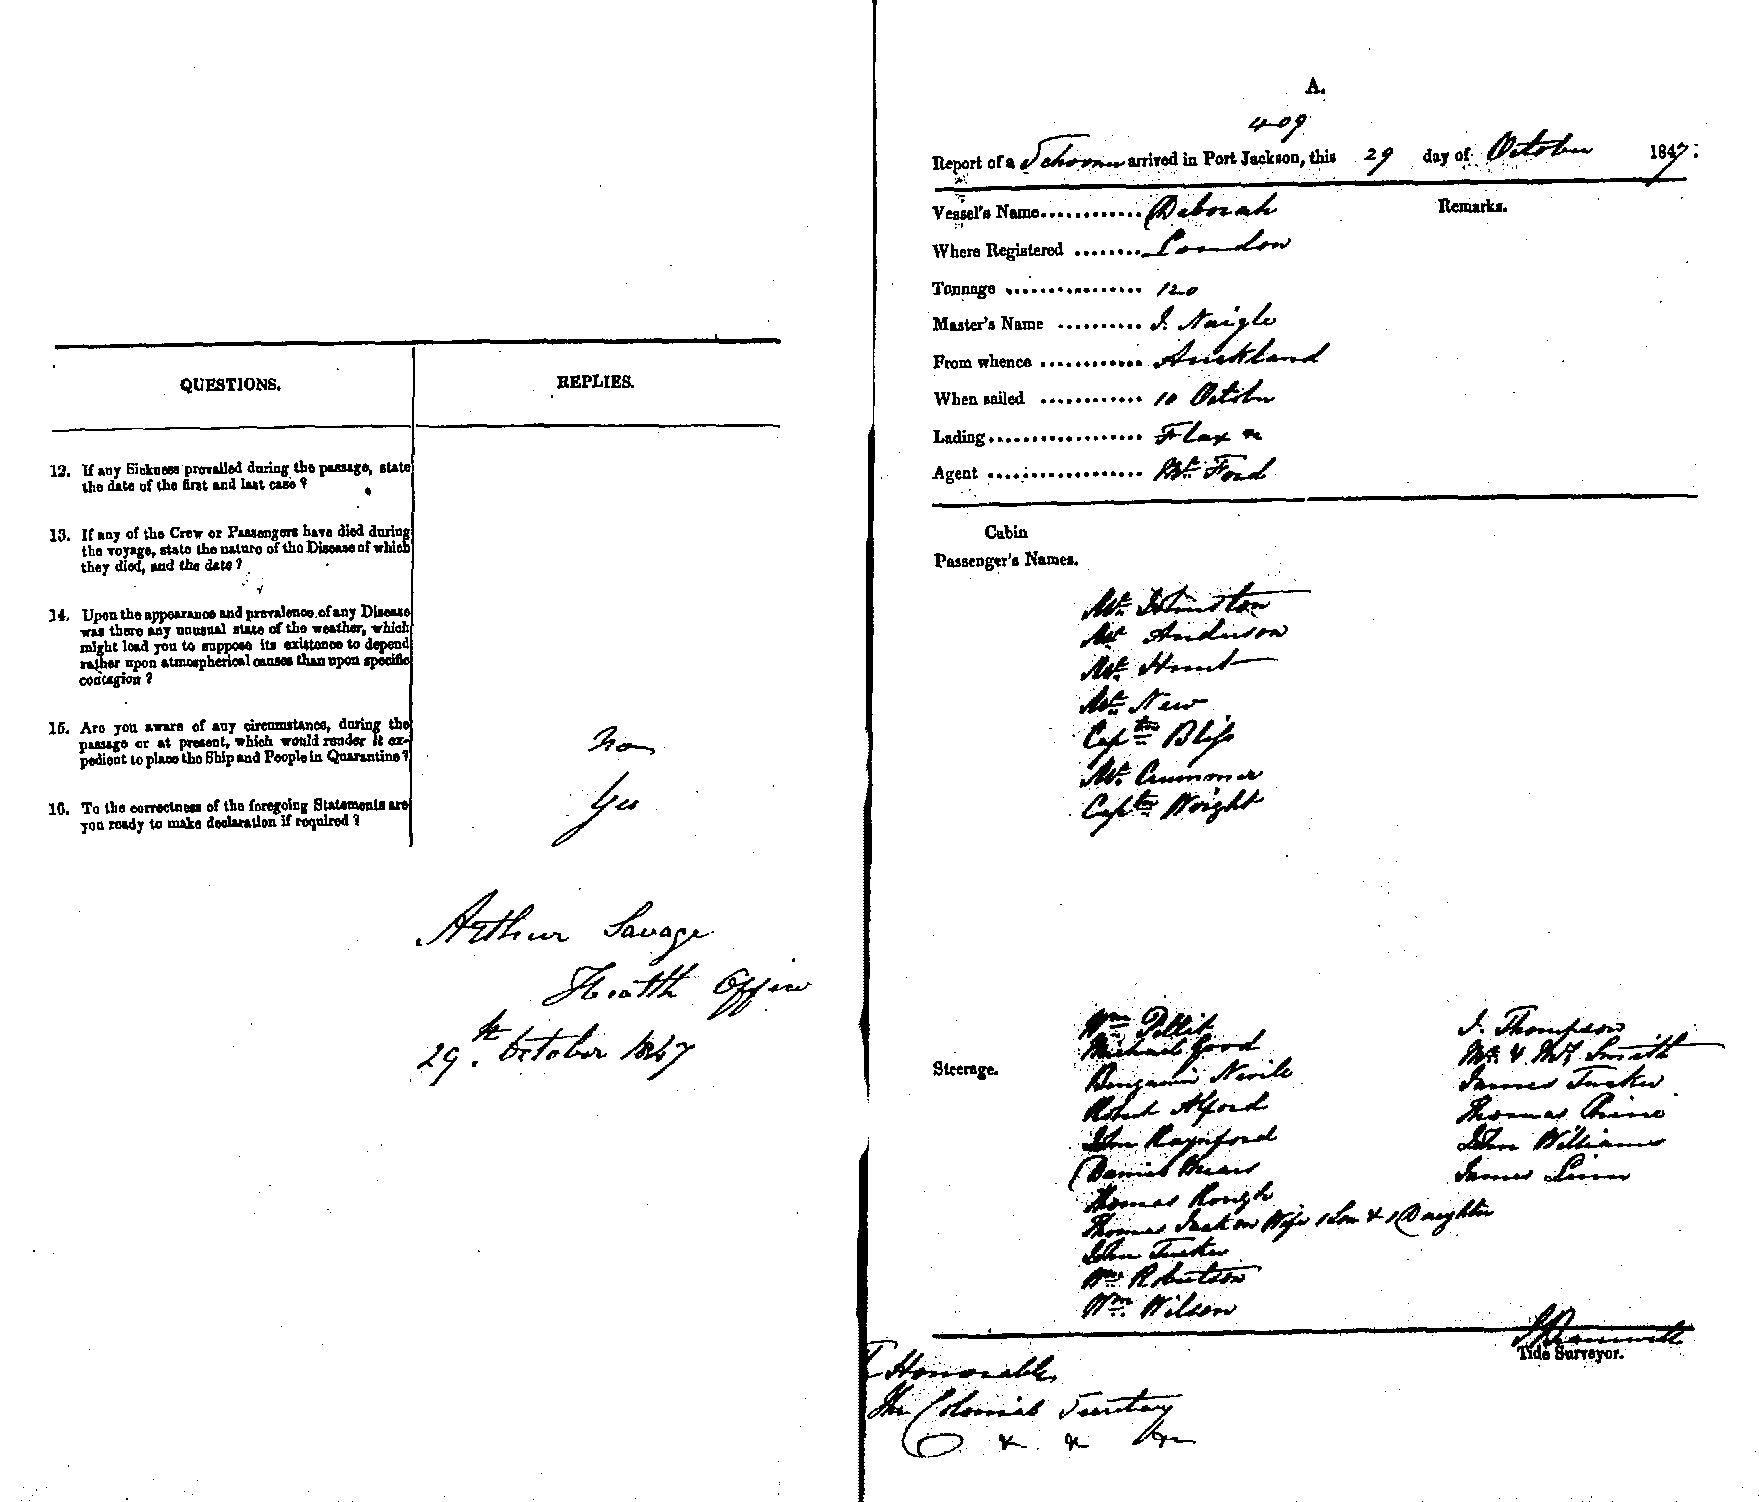 QUESTIONS.
REPLIES.
12. If any Sickness prevailed during the passage, state
the date of the first and last case ?
13. If any of the Crew or Passengers have died during
the voyage, state the nature of the Disease of which
they died, and the date ?
14. Upon the appearance and prevalence of any Disease
was there any unusual state of the weather, which
might lead you to suppose its existence to depend
rather upon atmospherical causes than upon specific
contagion ?
15. Are you aware of any circumstance, during the
passage or at present, which would render it ex-
pedient to place the Ship and People in Quarantine ?
None
16. To the correctness of the foregoing Statements are
you ready to make declaration if required ?
Yes
Arthur Savage
Health Officer
29th. October 1847
A.
409
Report of a Schooner arrived in Port Jackson, this 29 day of October 1847.
Vessel's Name............ Deborah
Remarks.
Where Registered ........ London
Tonnage ................ 120
Master's Name .......... J. Naigle
From whence ............ Auckland
When sailed ............ 10 October
Lading.................. Flax &c
Agent .................. Mr. Ford
Cabin
Passenger's Names.
Mr. Johnston
Mr Anderson
Mr. Hunt
Mr. New
Captn Bliss
Mr. Crummer
Captn Wright
Steerage.
Wm Pettit
Michael Good
Benjamin Nevile
Robert Alford
John Raynford
Daniel
Thomas Rough
Thomas Jackson Wife 1 Son & 1 Daughter
John Tucker
Wm Robertson
Wm. Wilson
J. Thompson
Mr. & Mrs Smith
James Tucker
Thomas
John Williams
James Linn
Tide Surveyor.
Honorable
The Colonial Secretary
&c &c &c